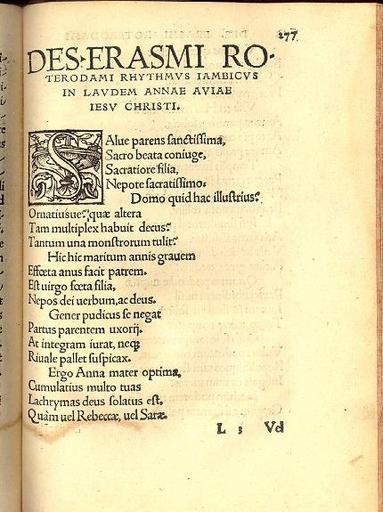 277
DES. ERASMI RO-
TERODAMI RHYTHMVS IAMBICVS
IN LAVDEM ANNAE AVIAE
IESV CHRISTI.
SAlue parens sanctissima,
Sacro beata coniuge,
Sacratiore filia,
Nepote sacratissimo.
Domo quid hac illustrius?
Ornatiusue? quæ altera
Tam multiplex habuit decus?
Tantum una monstrorum tulit?
Hic hic maritum annis grauem
Effœta anus facit patrem.
Est uirgo fœta filia,
Nepos dei uerbum, ac deus.
Gener pudicus se negat
Partus parentem uxorij.
At integram iurat, necꝗ
Riuale pallet suspicax.
Ergo Anna mater optima,
Cumulatius multo tuas
Lachrymas deus solatus est,
Quàm uel Rebeccæ, uel Saræ.
L 3 Vd